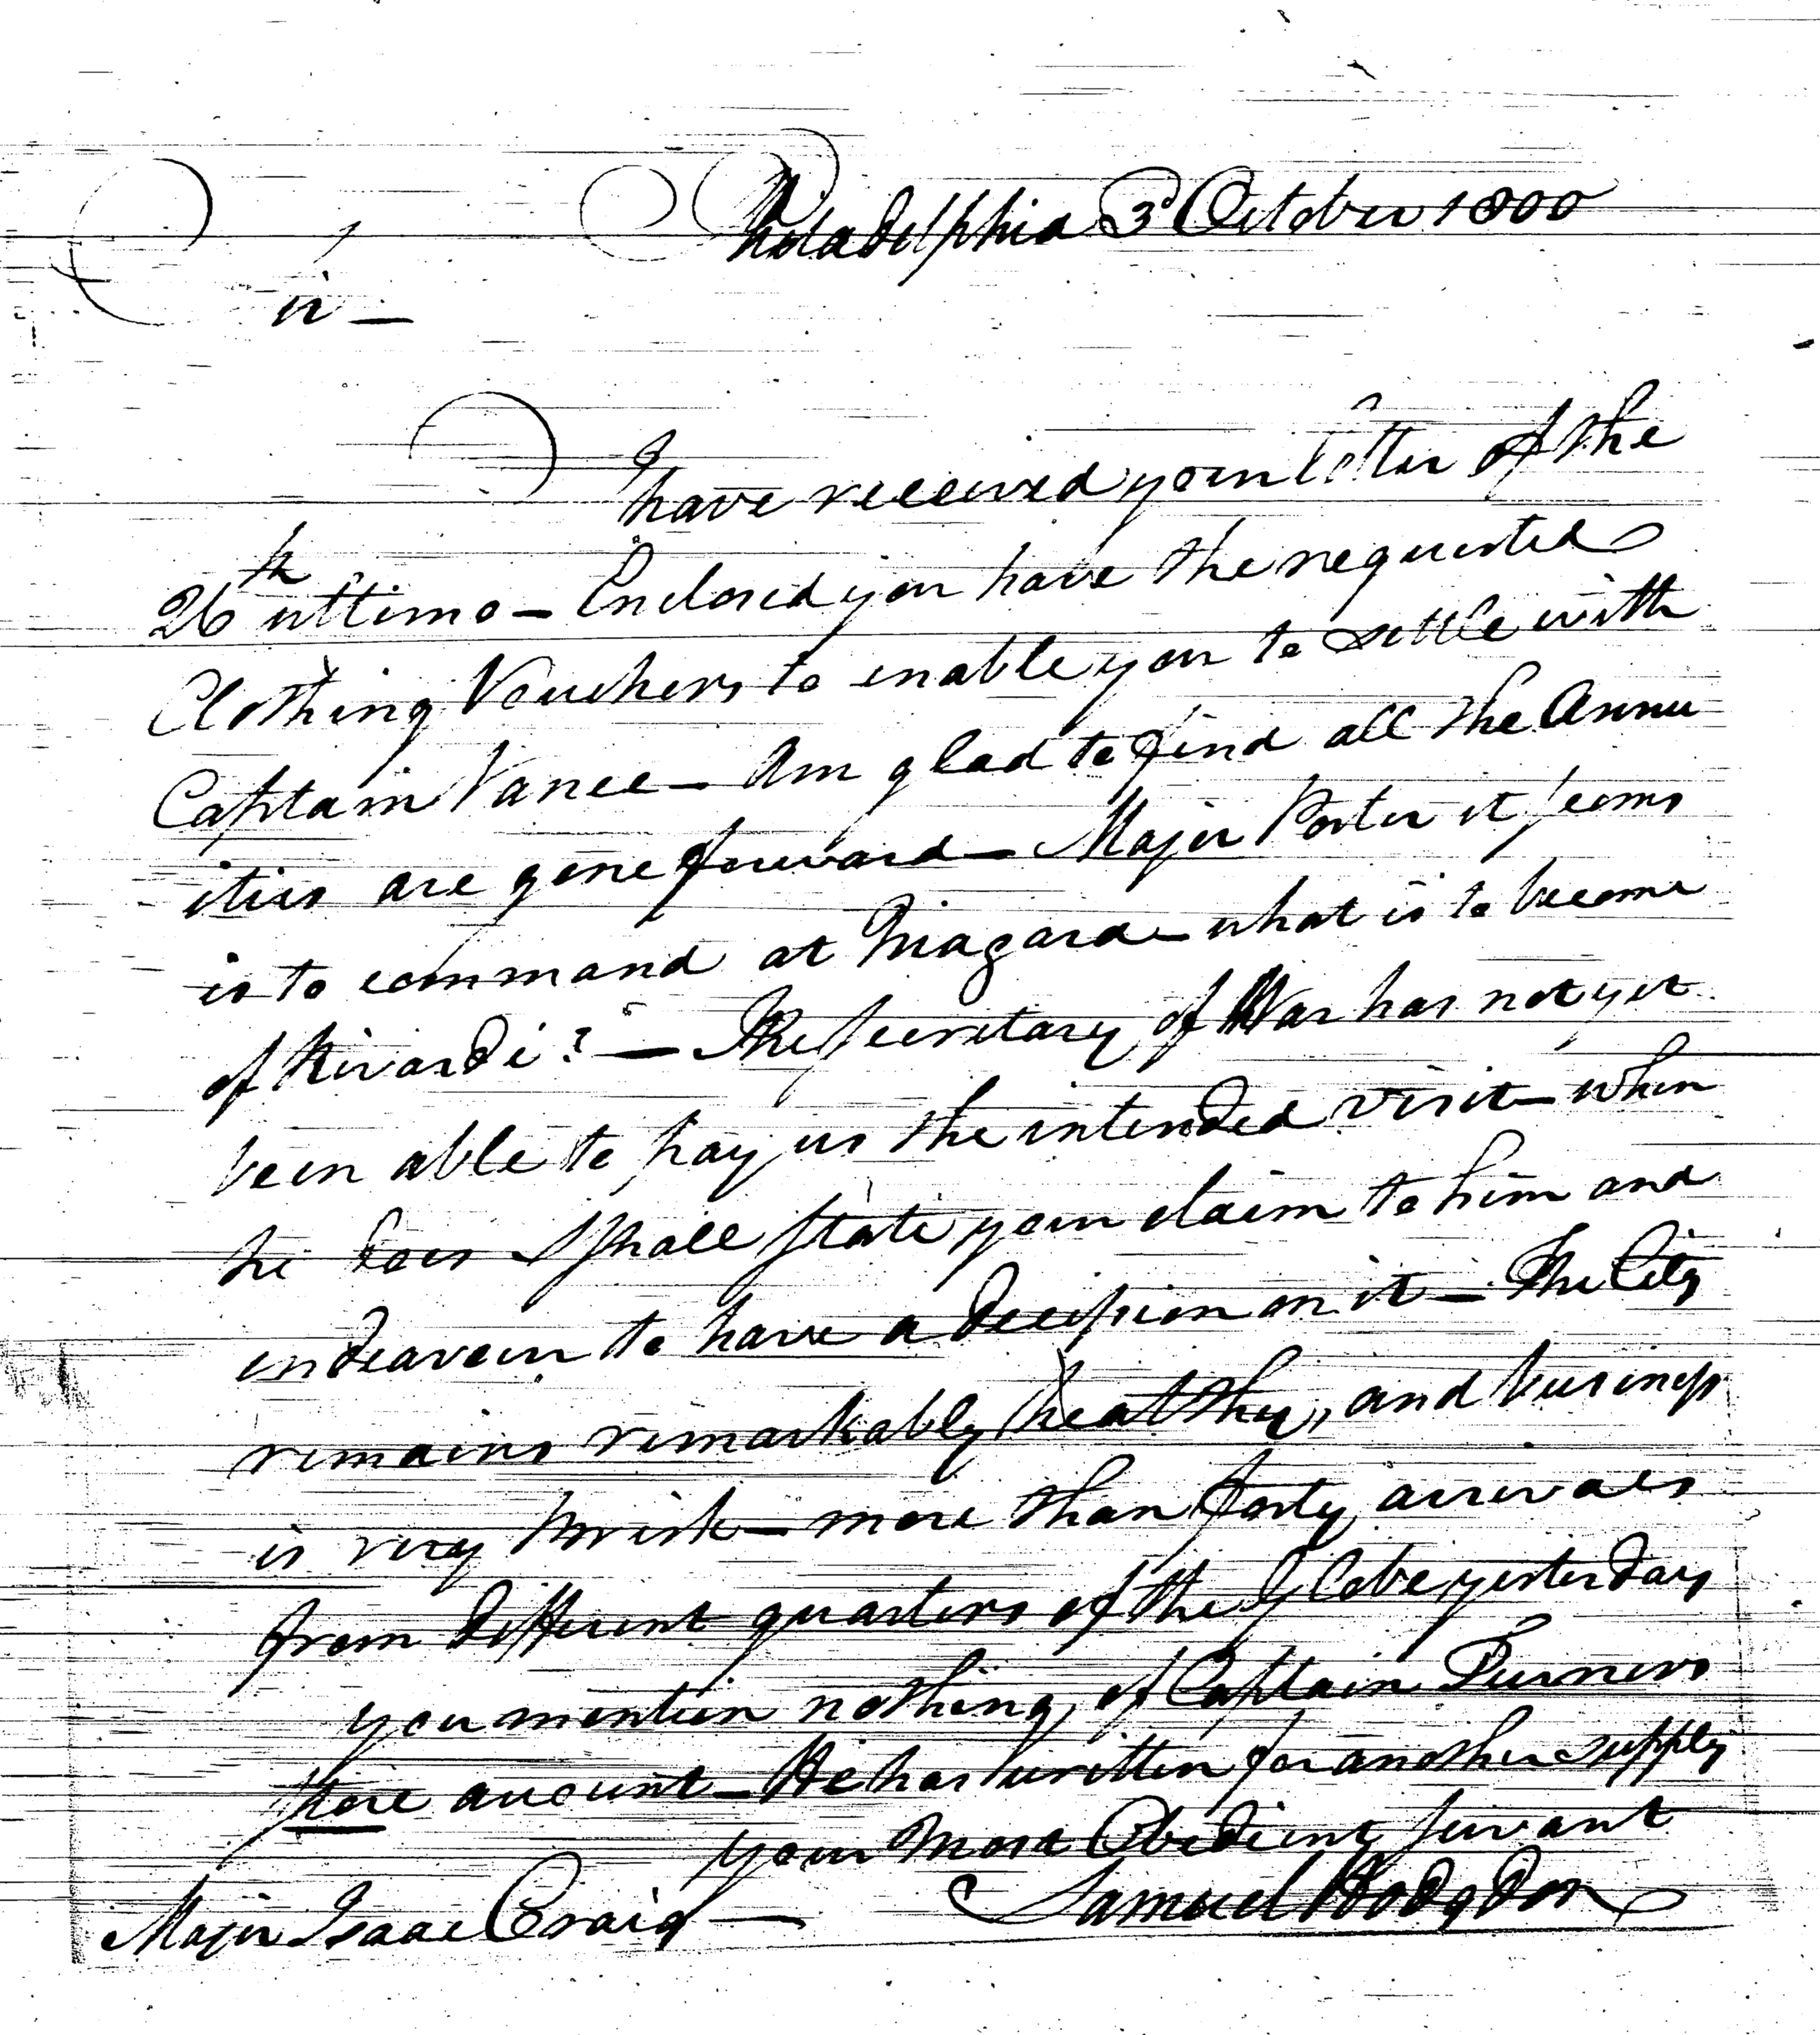 Philadelphia 3d October 1800
Sir —
I have received your letter of the
26th ultimo — Enclosed you have the requested
Clothing Vouchers to enable you to settle with
Captain Vance — Am glad to find all the Annu
ities are gone forward — Major Porter it seems
is to command at Niagara — what is to become
of Rivardi? — The Secretary of War has not yet
been able to pay us the intended visit — when
he does I shall state your claim to him and
endeavour to have a decission on it — The City
remains remarkably healthy, and business
is very brisk — more than forty arrivals
from different quarters of the Globe yesterday
you mention nothing of Captain Turners
store account — He has written for another supply
your Most Obedient Servant
Samuel Hodgdon
Major Isaac Craig —